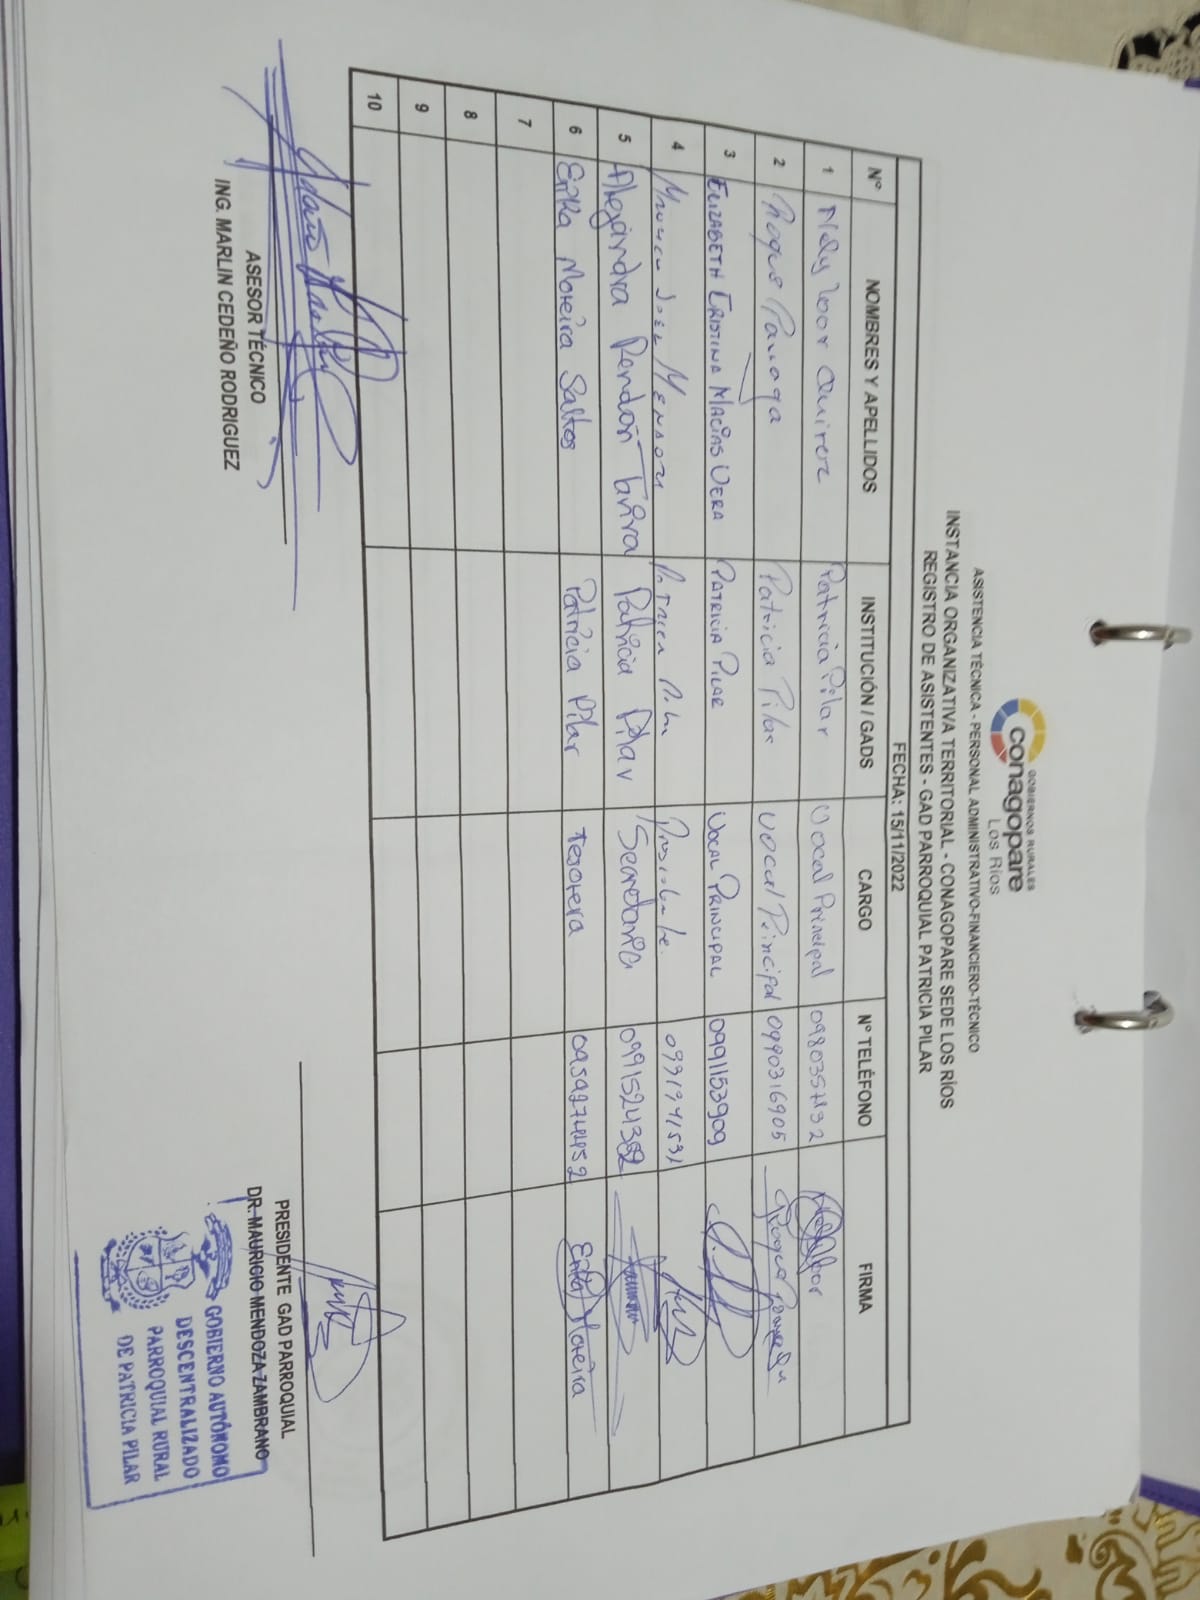 GOBIERNOS RURALES
conagopare
LOS RÍOS
ASISTENCIA TÉCNICA - PERSONAL ADMINISTRATIVO-FINANCIERO-TÉCNICO
INSTANCIA ORGANIZATIVA TERRITORIAL - CONAGOPARE SEDE LOS RÍOS
REGISTRO DE ASISTENTES - GAD PARROQUIAL PATRICIA PILAR
FECHA: 15/11/2022
N° NOMBRES Y APELLIDOS INSTITUCIÓN / GADS CARGO N° TELÉFONO FIRMA
1 Patricia Pilar Vocal Principal
2 Roque Patricia Pilar Vocal Principal 0990316905
3 ELIZABETH CRISTINA MACÍAS VERA PATRICIA PILAR VOCAL PRINCIPAL 0991153909
4 Presidente
5 Alejandra Rendón Patricia Pilar Secretaria
6 Erika Moreira Saltos Patricia Pilar Tesorera 0959274452 Erika Moreira
7
8
9
10
ASESOR TÉCNICO
ING. MARLIN CEDEÑO RODRIGUEZ
PRESIDENTE GAD PARROQUIAL
DR. MAURICIO MENDOZA ZAMBRANO
GOBIERNO AUTÓNOMO
DESCENTRALIZADO
PARROQUIAL RURAL
DE PATRICIA PILAR